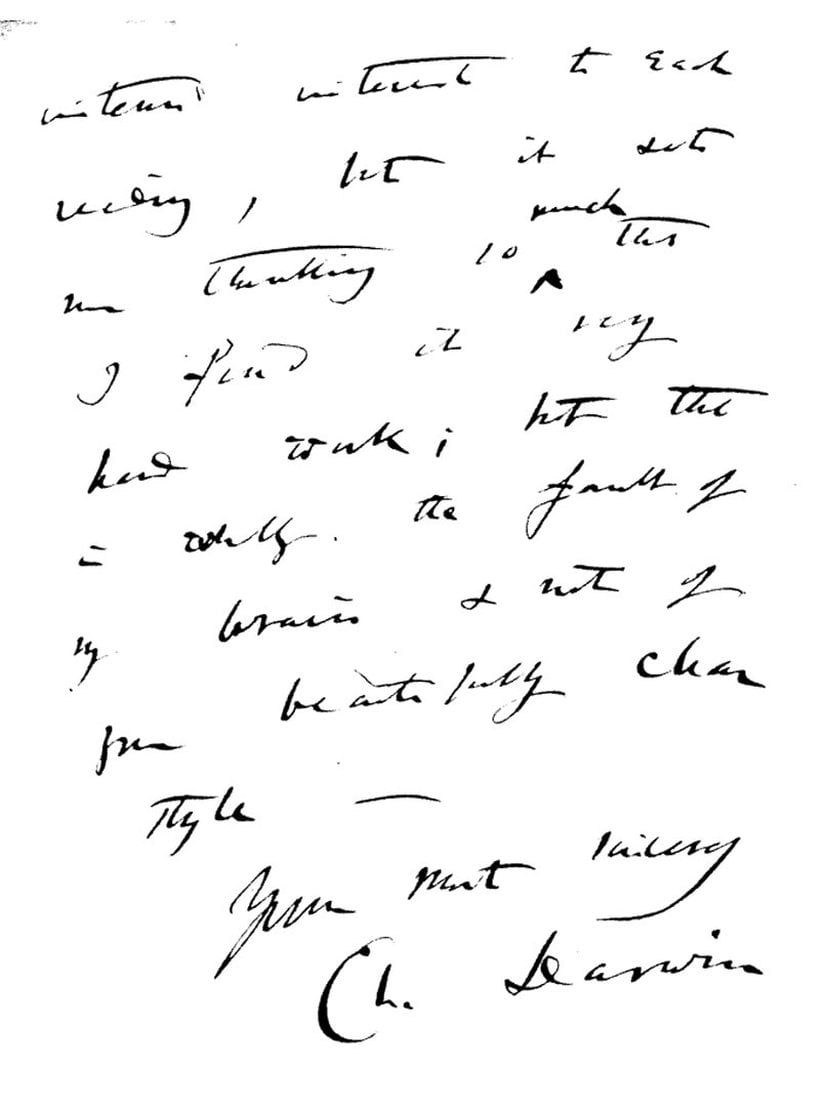 intense interest to each
reading, but it sets
me thinking so much that
I find it very
hard work; but that
is wholly the fault of
my brain & not of
your beautifully clear
style —
Yours most sincerely
Ch. Darwin